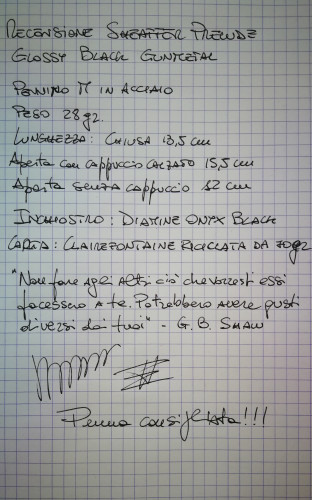 RECENSIONE SHEAFFER PRELUDE
GLOSSY BLACK GUNMETAL
PENNINO M IN ACCIAIO
PESO 28 gr.
LUNGHEZZA: CHIUSA 13,5 cm
Aperta con cappuccio calzato 15,5 cm
Aperta senza cappuccio 12 cm
INCHIOSTRO: DIAMINE ONYX BLACK
CARTA: CLAIREFONTAINE RICICLATA DA 70gr
"Non fare agli altri ciò che vorresti essi
facessero a te. Potrebbero avere gusti
diversi dai tuoi" - G. B. SHAW
Penna consigliata!!!